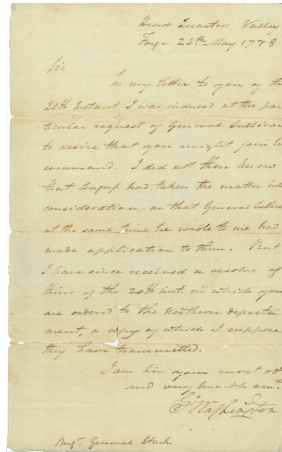 Head Quarters Valley
Forge 26th May 1778
Sir.
In my letter to you of the
20th Instant I was induced at the par
ticular request of General Sullivan
to desire that you might join his
command. I did not then know
that Congress had taken the matter into
consideration, or that General Sullivan
at the same time he wrote to me had
made application to them. But
I have since received a resolve of
theirs of the 20th inst. in which you
are ordered to the Northern depart
ment, a copy of which I suppose
they have transmitted.
I am Sir your most obt
and very humble servt.
Go Washington
Brigr. General Stark